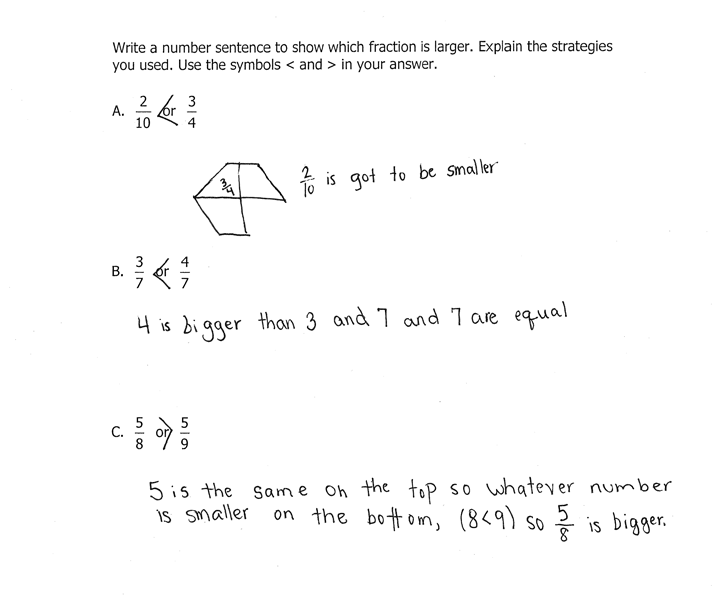 Write a number sentence to show which fraction is larger. Explain the strategies
you used. Use the symbols < and > in your answer.
A. 2/10 < or 3/4
3/4
2/10 is got to be smaller
B. 3/7 < or 4/7
4 is bigger than 3 and 7 and 7 are equal
C. 5/8 or > 5/9
5 is the same on the top so whatever number
is smaller on the bottom, (8<9) so 5/8 is bigger.